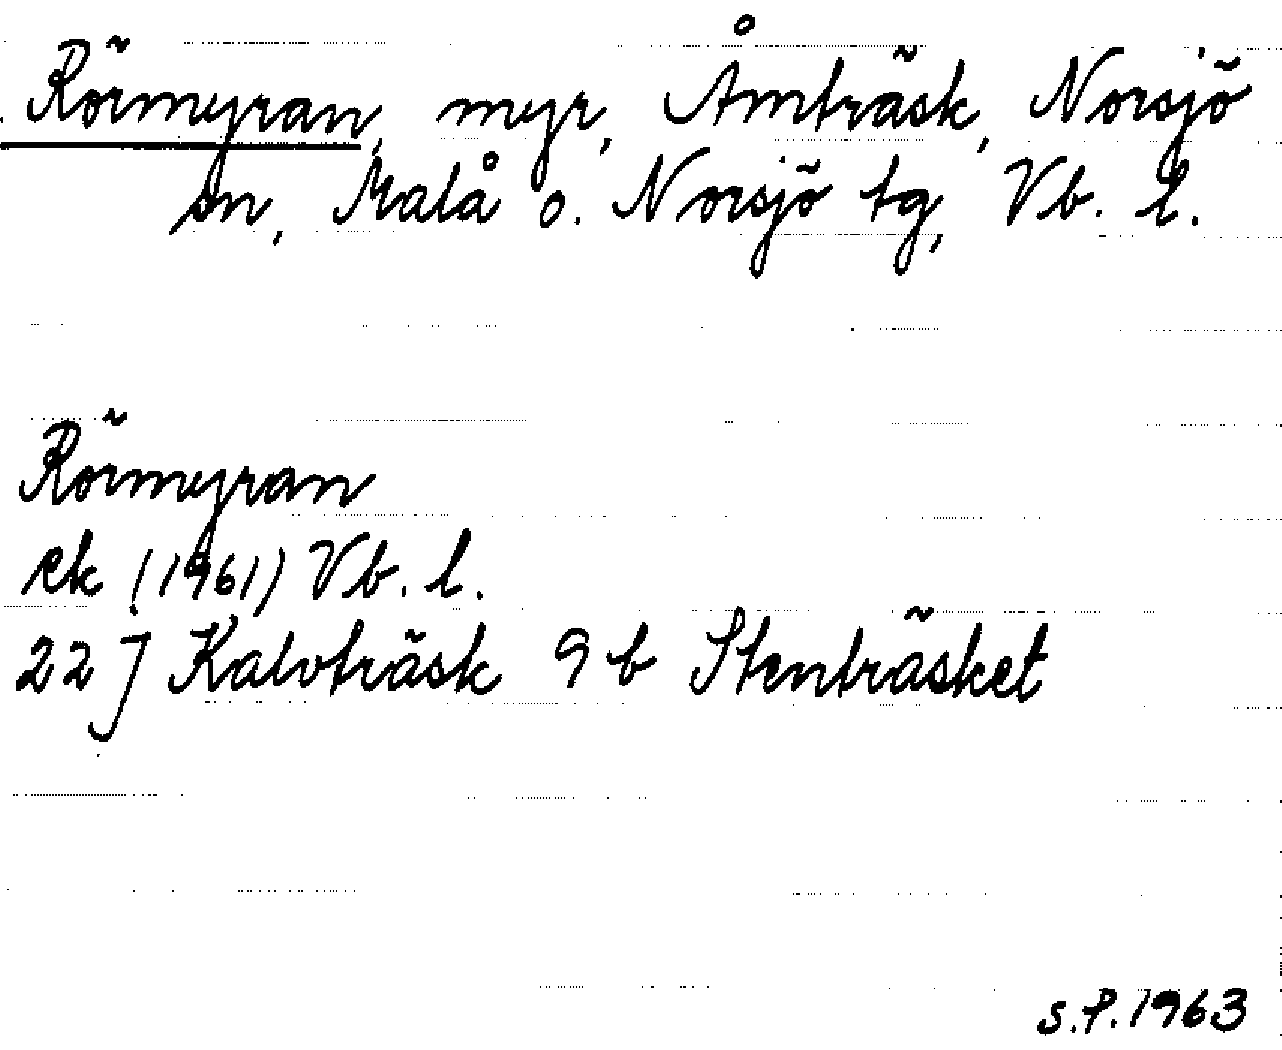 Rörmyran, myr, Åmträsk, Norsjö
sn, Malå o. Norsjö tg, Vb. l.
Rörmyran
ek (1961) Vb. l.
22 J Kalvträsk 9 b Stenträsket
S.P. 1963